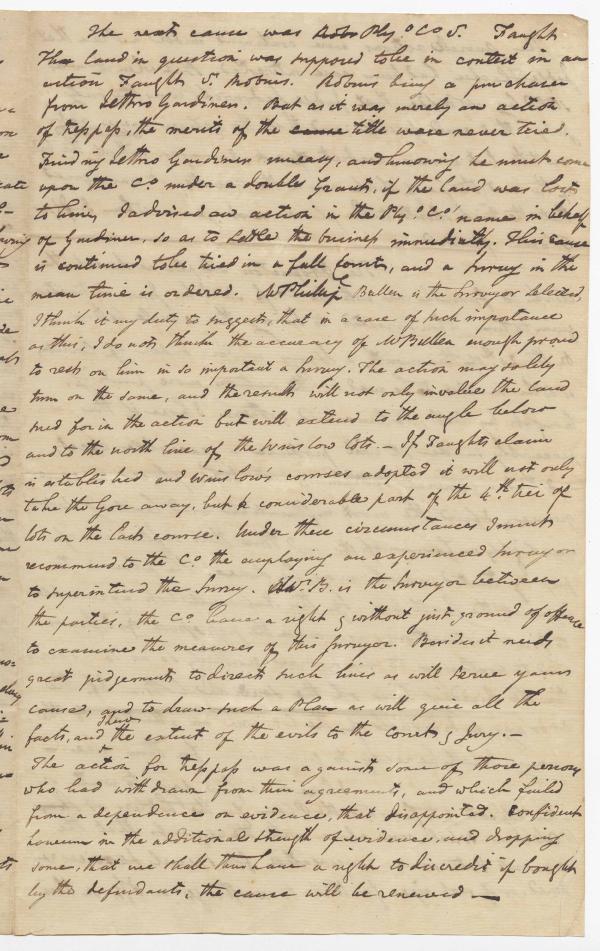 The next cause was Ply.º Cº v. Faught
The land in question was supposed to be in contest in an
action Faught v. Robins. Robins being a purchaser
from Jethro Gardiner. But as it was merely an action
of trespass, the merits of the cause title were never tried.
Finding Jethro Gardiner uneasy, and knowing he must come
upon the Cº under a double Grant, if the land was lost
to him, I advised an action in the Ply.º Cº.' name in behalf
of Gardiner, so as to settle the business immediately. This cause
is continued to be tried in a full Court, and a Survey in the
mean time is ordered. Mr Philip Bullen is the Surveyor selected,
I think it my duty to suggest, that in a case of such importance
as this, I do not think the accuracy of Mr Bullen enough proved
to rest on him in so important a Survey. The action may solely
turn on the same, and the result will not only involve the land
sued for in the action but will extend to the angle below
and to the north line of the Winslow lots. — If Faughts claim
is established and Winslow's courses adopted it will not only
take the Gore away, but a considerable part of the 4th. tier of
lots on the last course. Under these circumstances I must
recommend to the Cº the employing an experienced Surveyor
to superintend the Survey. Mr. B. is the Surveyor between
the parties, the Cº have a right & without just ground of offence
to examine the measures of this Surveyor. Besides it needs
great judgement to direct such lines as will serve yours
cause, and to draw such a Plan as will give all the
facts, and shew the extent of the evils to the Court & Jury. —
The action for trespass was against some of those persons
who had withdrawn from their agreement, and which failed
from a dependence on evidence, that disappointed. Confident
however in the additional strength of evidence, and dropping
some, that we shall then have a right to discredit if bought
by the defendants, the cause will be renewed —